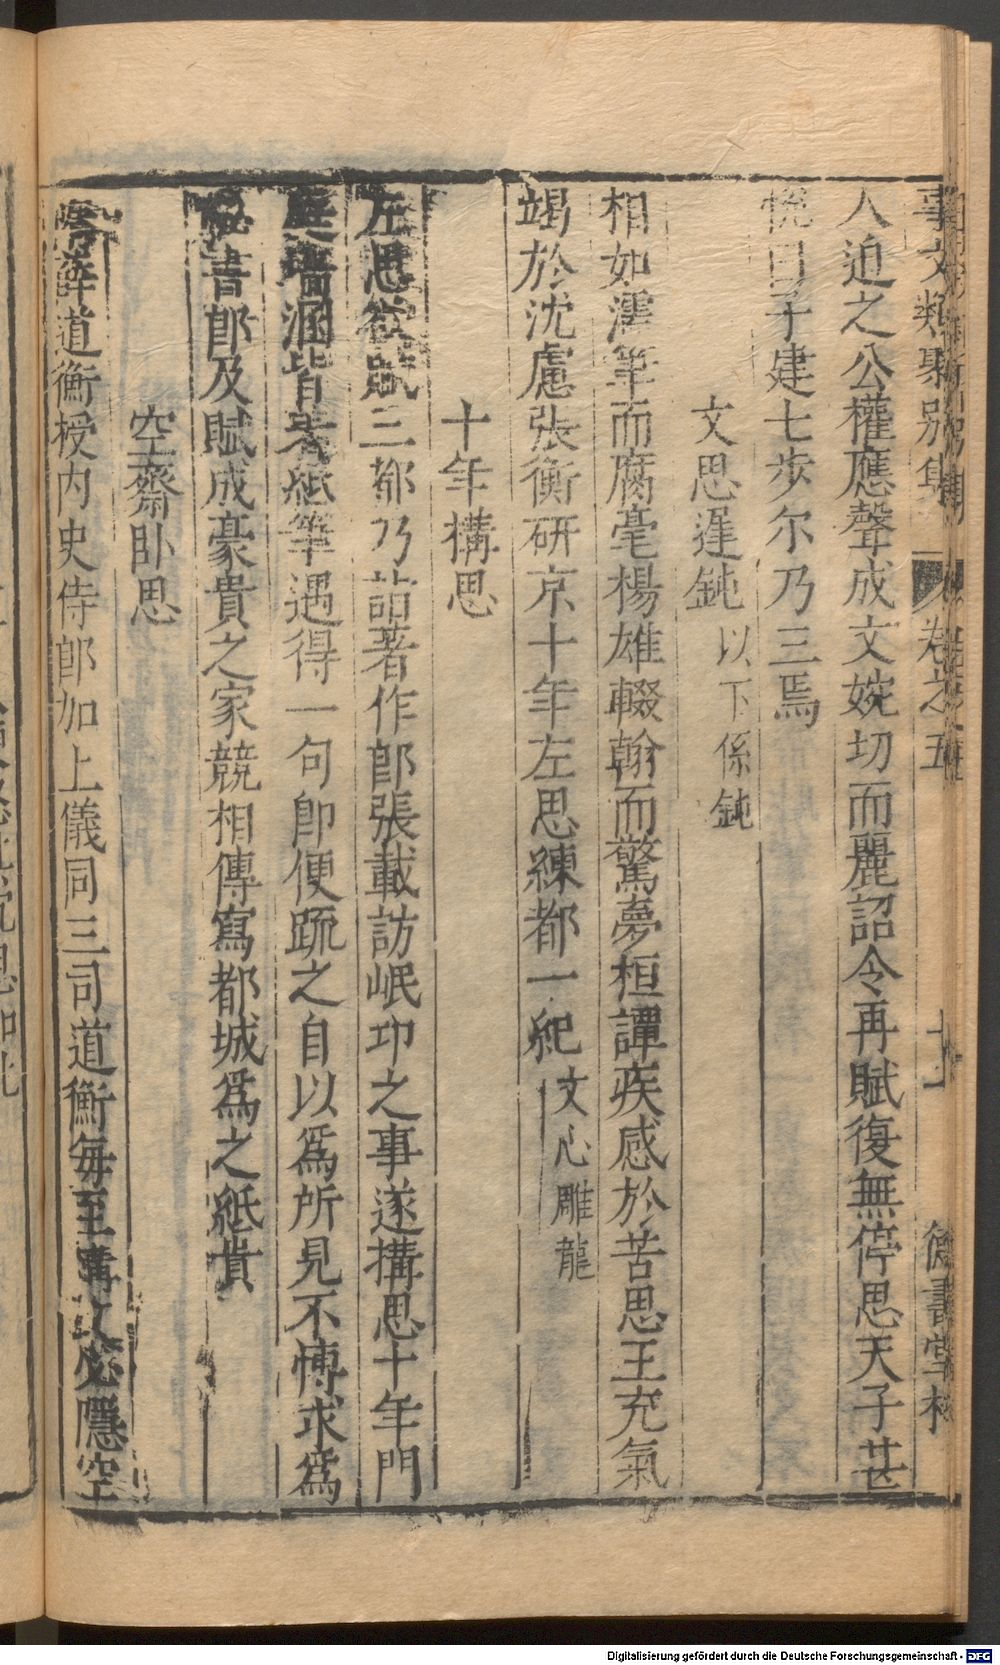 事文類聚别集 卷之五 十一 德書堂梓
人迫之公權應聲成文婉切而麗詔令再賦復無停思天子甚
悅曰子建七步尔乃三焉
文思遲鈍 以下係鈍
相如濡筆而腐毫楊雄輟翰而驚夢桓譚疾感於苦思王充氣
竭於沈慮張衡研京十年左思練都一紀 文心雕龍
十年構思
左思欲賦三都乃詣著作郎張載訪岷邛之事遂構思十年門
庭墻溷皆著紙筆遇得一句卽便疏之自以爲所見不愽求爲
秘書郎及賦成豪貴之家競相傳寫都城爲之紙貴
空齋卧思
隋薛道衡授内史侍郎加上儀同三司道衡每至搆文必隱空
Digitalisierung gefördert durch die Deutsche Forschungsgemeinschaft - DFG